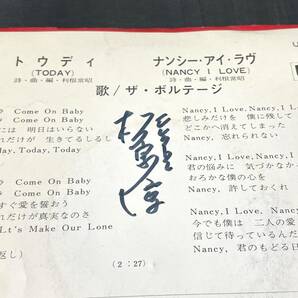 トゥディ
(TODAY)
詩・曲・編・利根常昭
ナンシー・アイ・ラヴ
(NANCY I LOVE)
詩・曲・編・利根常昭
U
歌/ザ・ボルテージ
Come On Baby
Come On Baby
には 明日はいらない
れだけが 生きてるしるし
day, Today, Today
Come On Baby
Come On Baby
すぐ愛を誓おう
れだけが真実なのさ
Let's Make Our Lone
返し)
(2:27)
Nancy, I Love, Nancy, I L
悲しみだけを 僕に残して
どこかへ消えてしまった
Nancy, 忘れられない
Nancy, I Love, Nancy, I
君の悩みに 気づかなか
おろかな僕の心を
Nancy, 許しておくれ
Nancy, I Love, Nancy
今でも僕らは 二人の愛
信じて待っている
Nancy, 君のもどる日